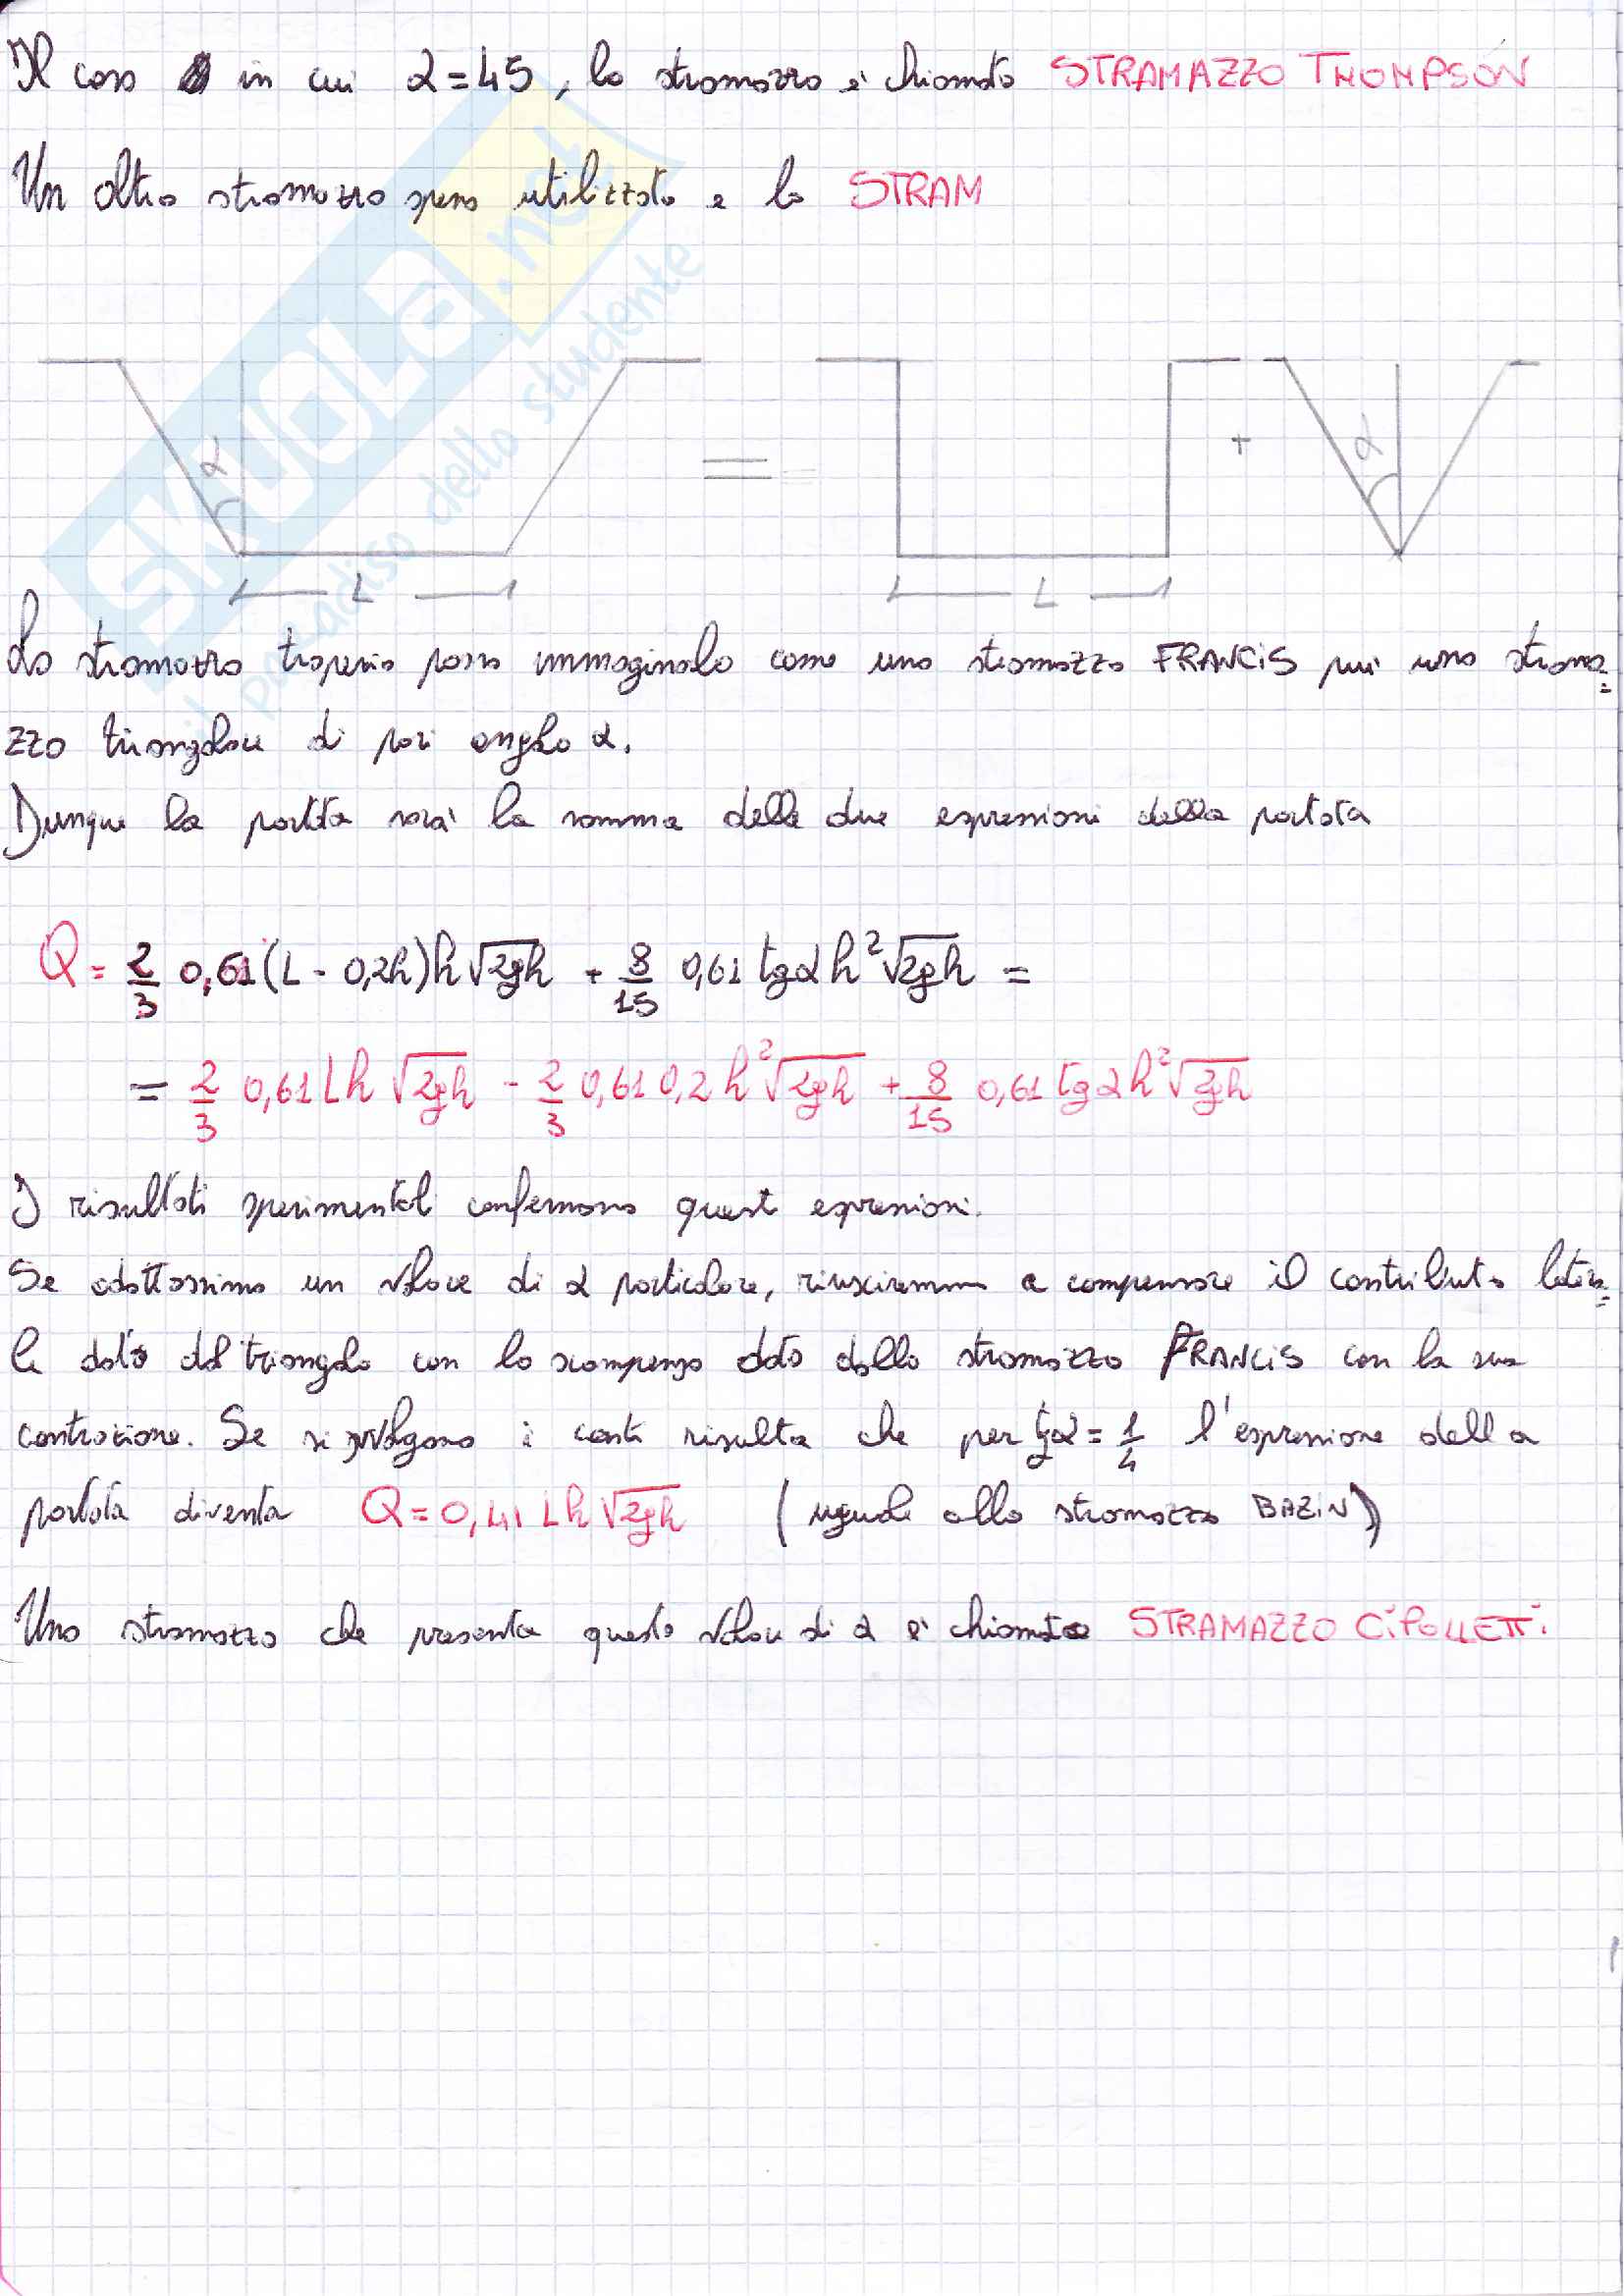 Il caso in cui α=45, lo stramazzo è chiamato STRAMAZZO THOMPSON
Un altro stramazzo spesso utilizzato e lo STRAM
SKUOLA.net
il paradiso dello studente
α
=
+
α
L
L
Lo stramazzo trapezio posso immaginarlo come uno stramazzo FRANCIS più uno strama=
zzo triangolare di pari angolo α.
Dunque la portata sarà la somma delle due espressioni della portata
Q = 2/3 0,61(L - 0,2h)h√2gh + 8/15 0,61 tgα h²√2gh =
= 2/3 0,61 Lh √2gh - 2/3 0,61 0,2 h²√2gh + 8/15 0,61 tgα h²√2gh
I risultati sperimentali confermano questi espressioni.
Se adottassimo un valore di α particolare, riusciremmo a compensare il contributo latera=
le dato dal triangolo con lo scompenso dato dallo stramazzo FRANCIS con la sua
contrazione. Se si svolgono i conti risulta che per tgα = 1/4 l'espressione della
portata diventa Q = 0,41 Lh√2gh (uguale allo stramazzo BAZIN)
Uno stramazzo che presenta questo valore di α è chiamato STRAMAZZO CIPOLLETTI.